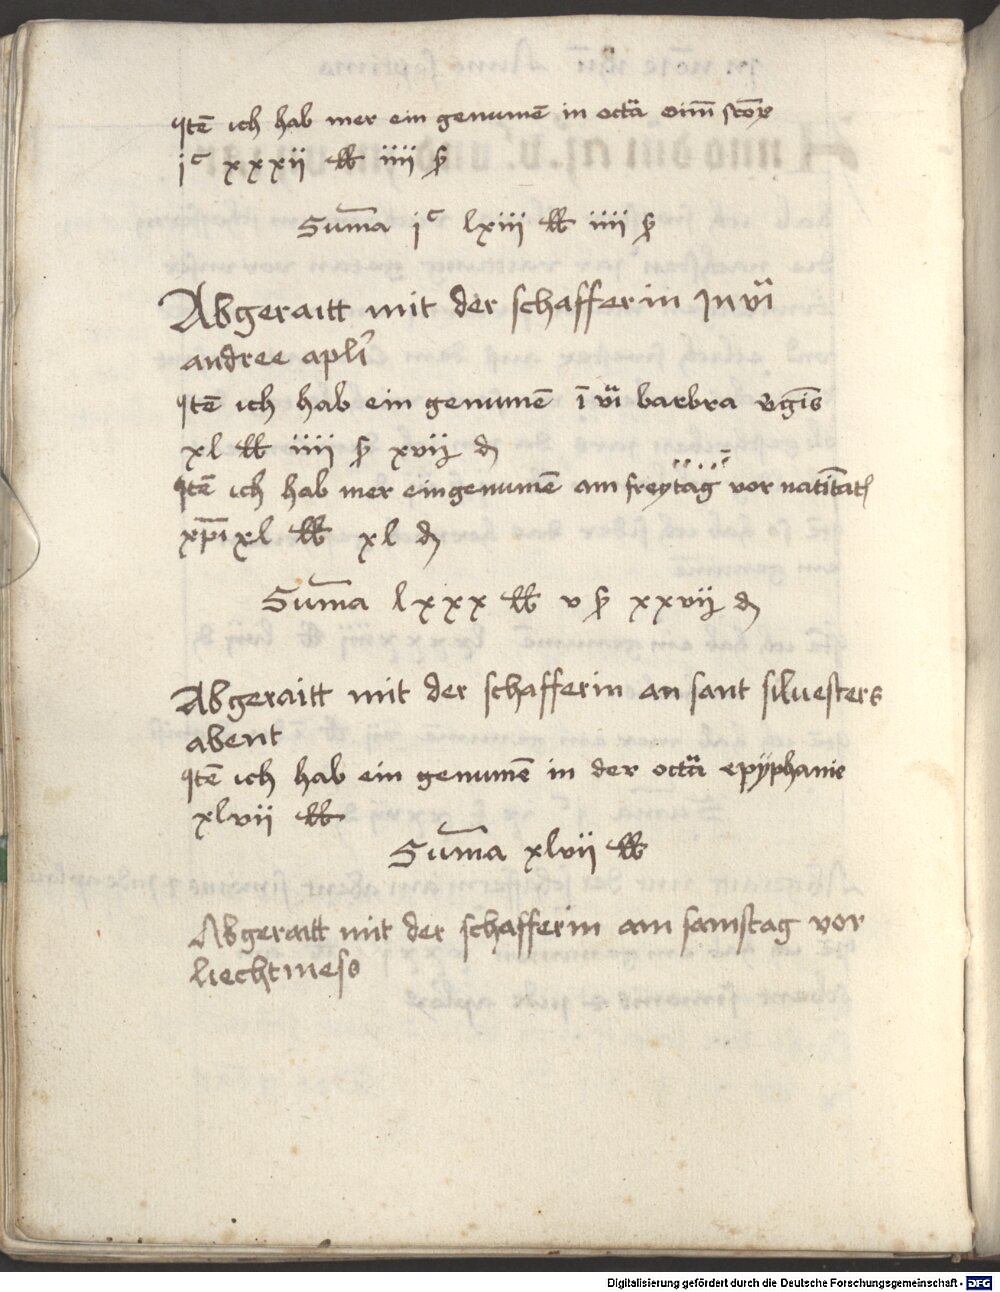 Itē ich hab mer ein genumē in octa͞ oim̄ sto͞ꝝ
iᶜ xxxii ℔ iiii ß
Sum̄a iᶜ lxiii ℔ iiii ß
Abgeraitt mit der schafferin In vi͞
andree apl̄i
Itē ich hab ein genumē ī vi͞ barbra v̄gīs
xl ℔ iiii ß xvij ₰
Itē ich hab mer eingenumē am freytag vor natītatꝭ
xp̄i xl ℔ xl ₰
Sum̄a lxxx ℔ v ß xxvij ₰
Abgeraitt mit der schafferin an sant siluesters
abent
Itē ich hab ein genumē in der octa͞ epÿphanie
xlvii ℔
Sum̄a xlvii ℔
Abgeraitt mit der schafferin am samstag vor
liechtmess
Digitalisierung gefördert durch die Deutsche Forschungsgemeinschaft - DFG